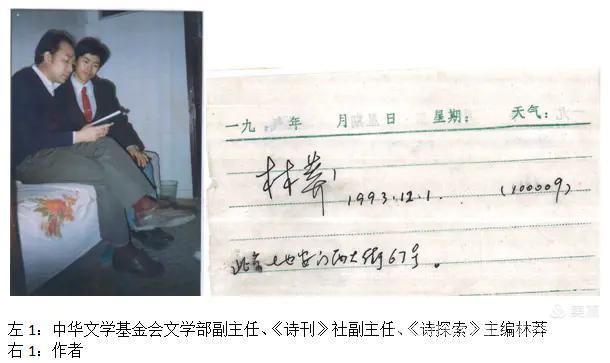 一九 年 月 日 星期： 天气：
林莽 1993.12.1. (100009)
北京地安门西大街67号。
左 1：中华文学基金会文学部副主任、《诗刊》社副主任、《诗探索》主编林莽
右 1：作者
美篇